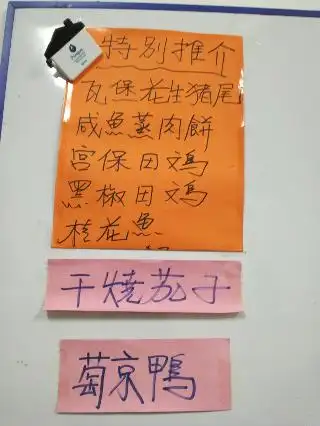 特別推介
瓦保花生猪尾
咸魚蒸肉餅
宮保田鸡
黑椒田鸡
桂花魚
干燒茄子
萄京鴨